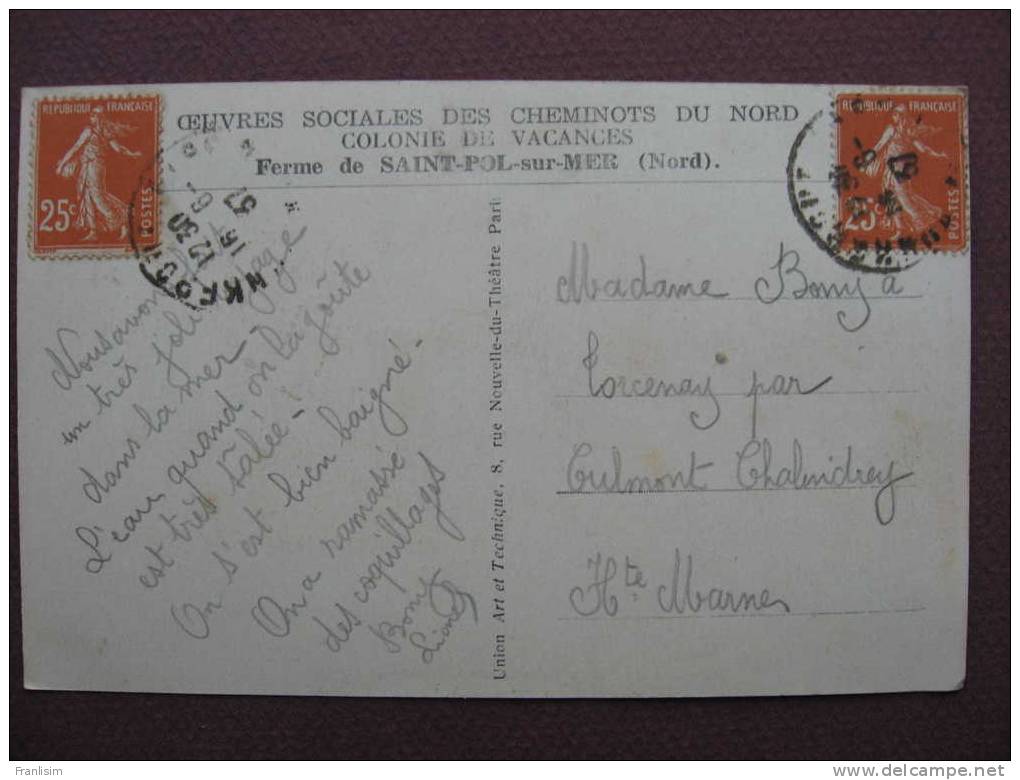 RÉPUBLIQUE FRANÇAISE
25c
POSTES
RÉPUBLIQUE FRANÇAISE
25c
POSTES
ŒUVRES SOCIALES DES CHEMINOTS DU NORD
COLONIE DE VACANCES
Ferme de SAINT-POL-sur-MER (Nord).
12 30
16 - 8
37
Nous avons fait
un très joli voyage
dans la mer
L'eau quand on la goûte
est très salée -
On s'est bien baigné -
On a ramassé
des coquillages
Bony
Lionel
Union Art et Technique, 8, rue Nouvelle-du-Théâtre Paris
Madame Bony à
Torcenay par
Culmont Chalindrey
Hte Marne
Franlisim
delcampe.net